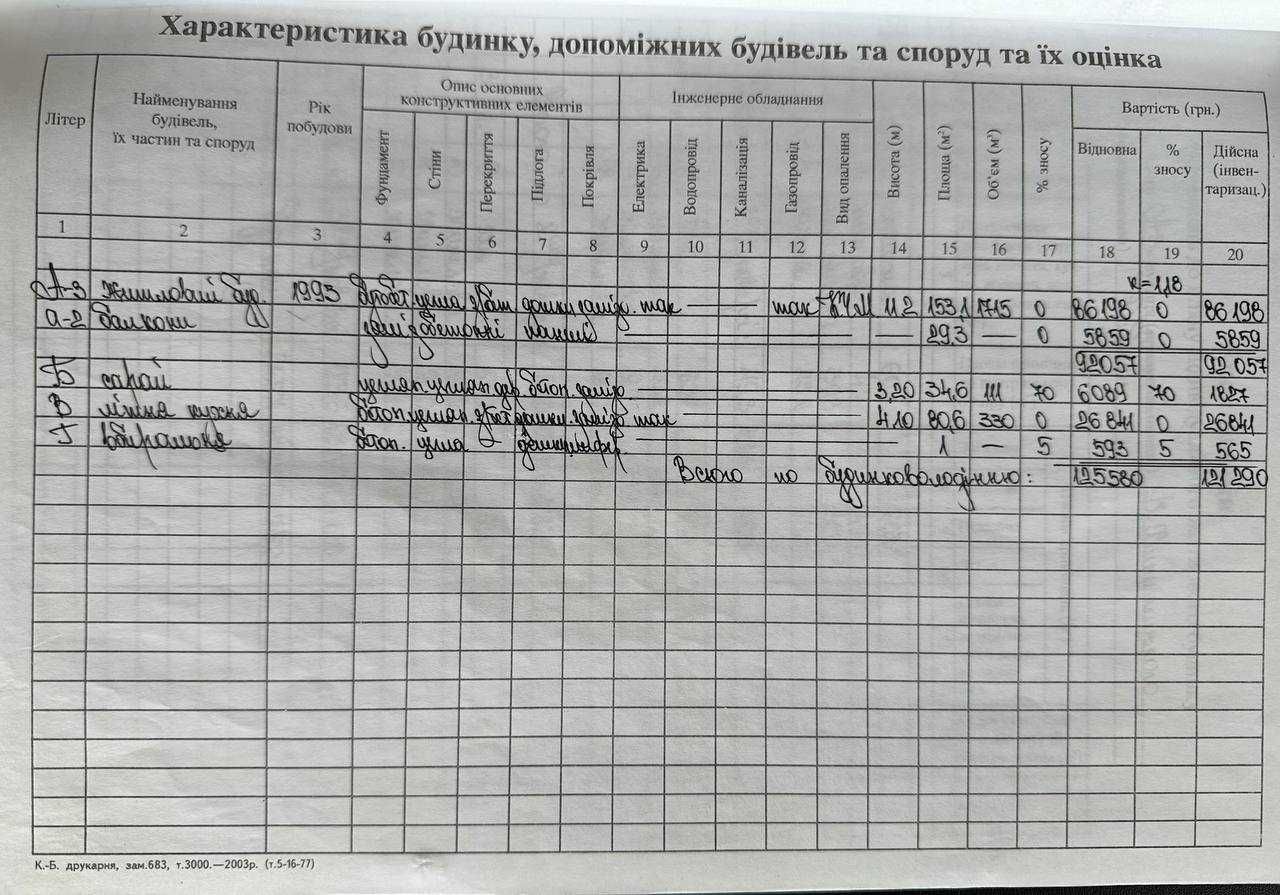 Характеристика будинку, допоміжних будівель та споруд та їх оцінка
Літер
Найменування
будівель,
їх частин та споруд
Рік
побудови
Опис основних
конструктивних елементів
Фундамент
Стіни
Перекриття
Підлога
Покрівля
Інженерне обладнання
Електрика
Водопровід
Каналізація
Газопровід
Вид опалення
Висота (м)
Площа (м²)
Об'єм (м³)
% зносу
Вартість (грн.)
Відновна
%
зносу
Дійсна
(інвен-
таризац.)
1 2 3 4 5 6 7 8 9 10 11 12 13 14 15 16 17 18 19 20
к=1,18
А-3 житловий буд. 1993 так — так 11 2 153,1 1715 0 86198 0 86198
а-2 балкони — — 29,3 — 0 5859 0 5859
92057 92057
Б сарай — 3,20 34,6 111 70 6089 70 1827
В літня кухня так — 4,10 80,6 330 0 26841 0 26841
Г вбиральня — 1 — 5 593 5 565
Всього по будинковолодінню: 125580 121290
К.-Б. друкарня, зам.683, т.3000.—2003р. (т.5-16-77)